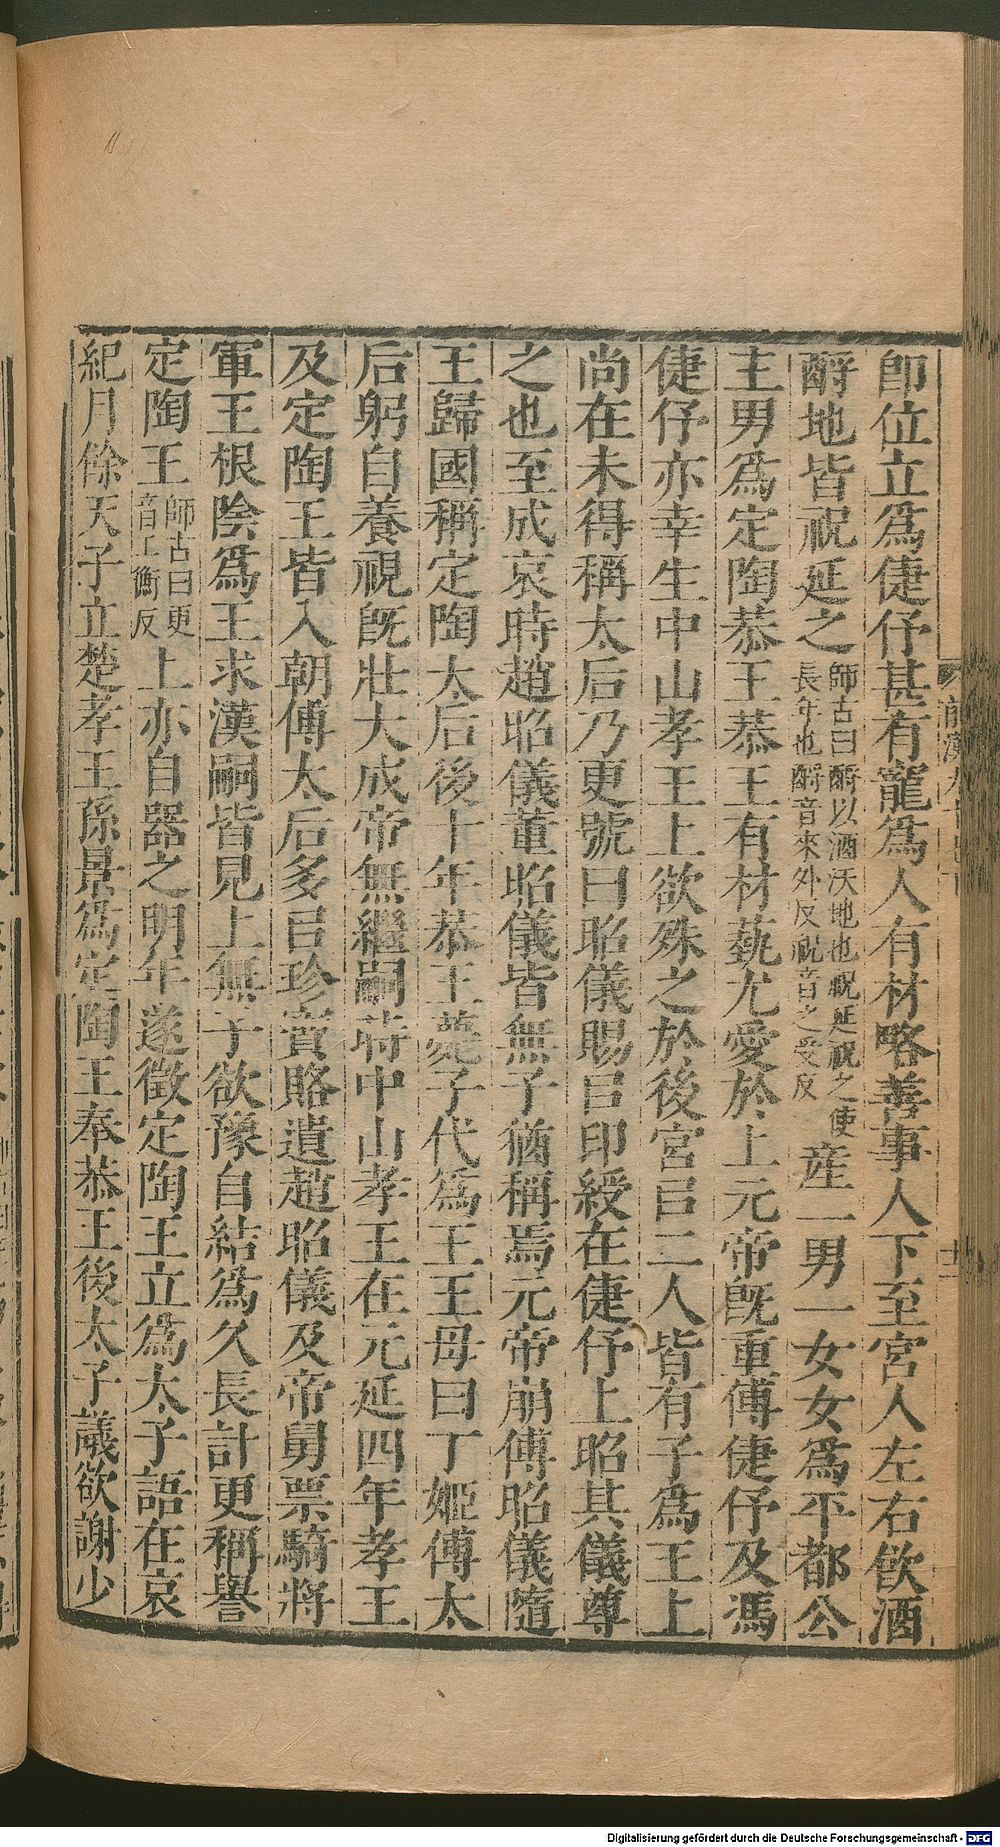 卽位立爲倢伃甚有寵爲人有材略善事人下至宮人左右飮酒
酹地皆祝延之師古曰酹以酒沃地也祝延祝之使長年也酹音來外反祝音之受反產一男一女女爲平都公
主男爲定陶恭王恭王有材藝尤愛於上元帝旣重傅倢伃及馮
倢伃亦幸生中山孝王上欲殊之於後宮㠯二人皆有子爲王上
尚在未得稱太后乃更號曰昭儀賜㠯印綬在倢伃上昭其儀尊
之也至成哀時趙昭儀董昭儀皆無子猶稱焉元帝崩傅昭儀隨
王歸國稱定陶太后後十年恭王薨子代爲王王母曰丁姬傅太
后躬自養視旣壯大成帝無繼嗣時中山孝王在元延四年孝王
及定陶王皆入朝傅太后多㠯珍寶賂遺趙昭儀及帝舅票騎將
軍王根陰爲王求漢嗣皆見上無子欲豫自結爲久長計更稱譽
定陶王師古曰更音工衡反上亦自器之明年遂徵定陶王立爲太子語在哀
紀月餘天子立楚孝王孫景爲定陶王奉恭王後太子議欲謝少
Digitalisierung gefördert durch die Deutsche Forschungsgemeinschaft - DFG